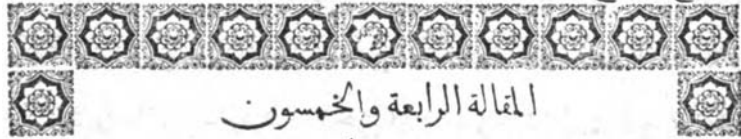 المقالة الرابعة والخمسون